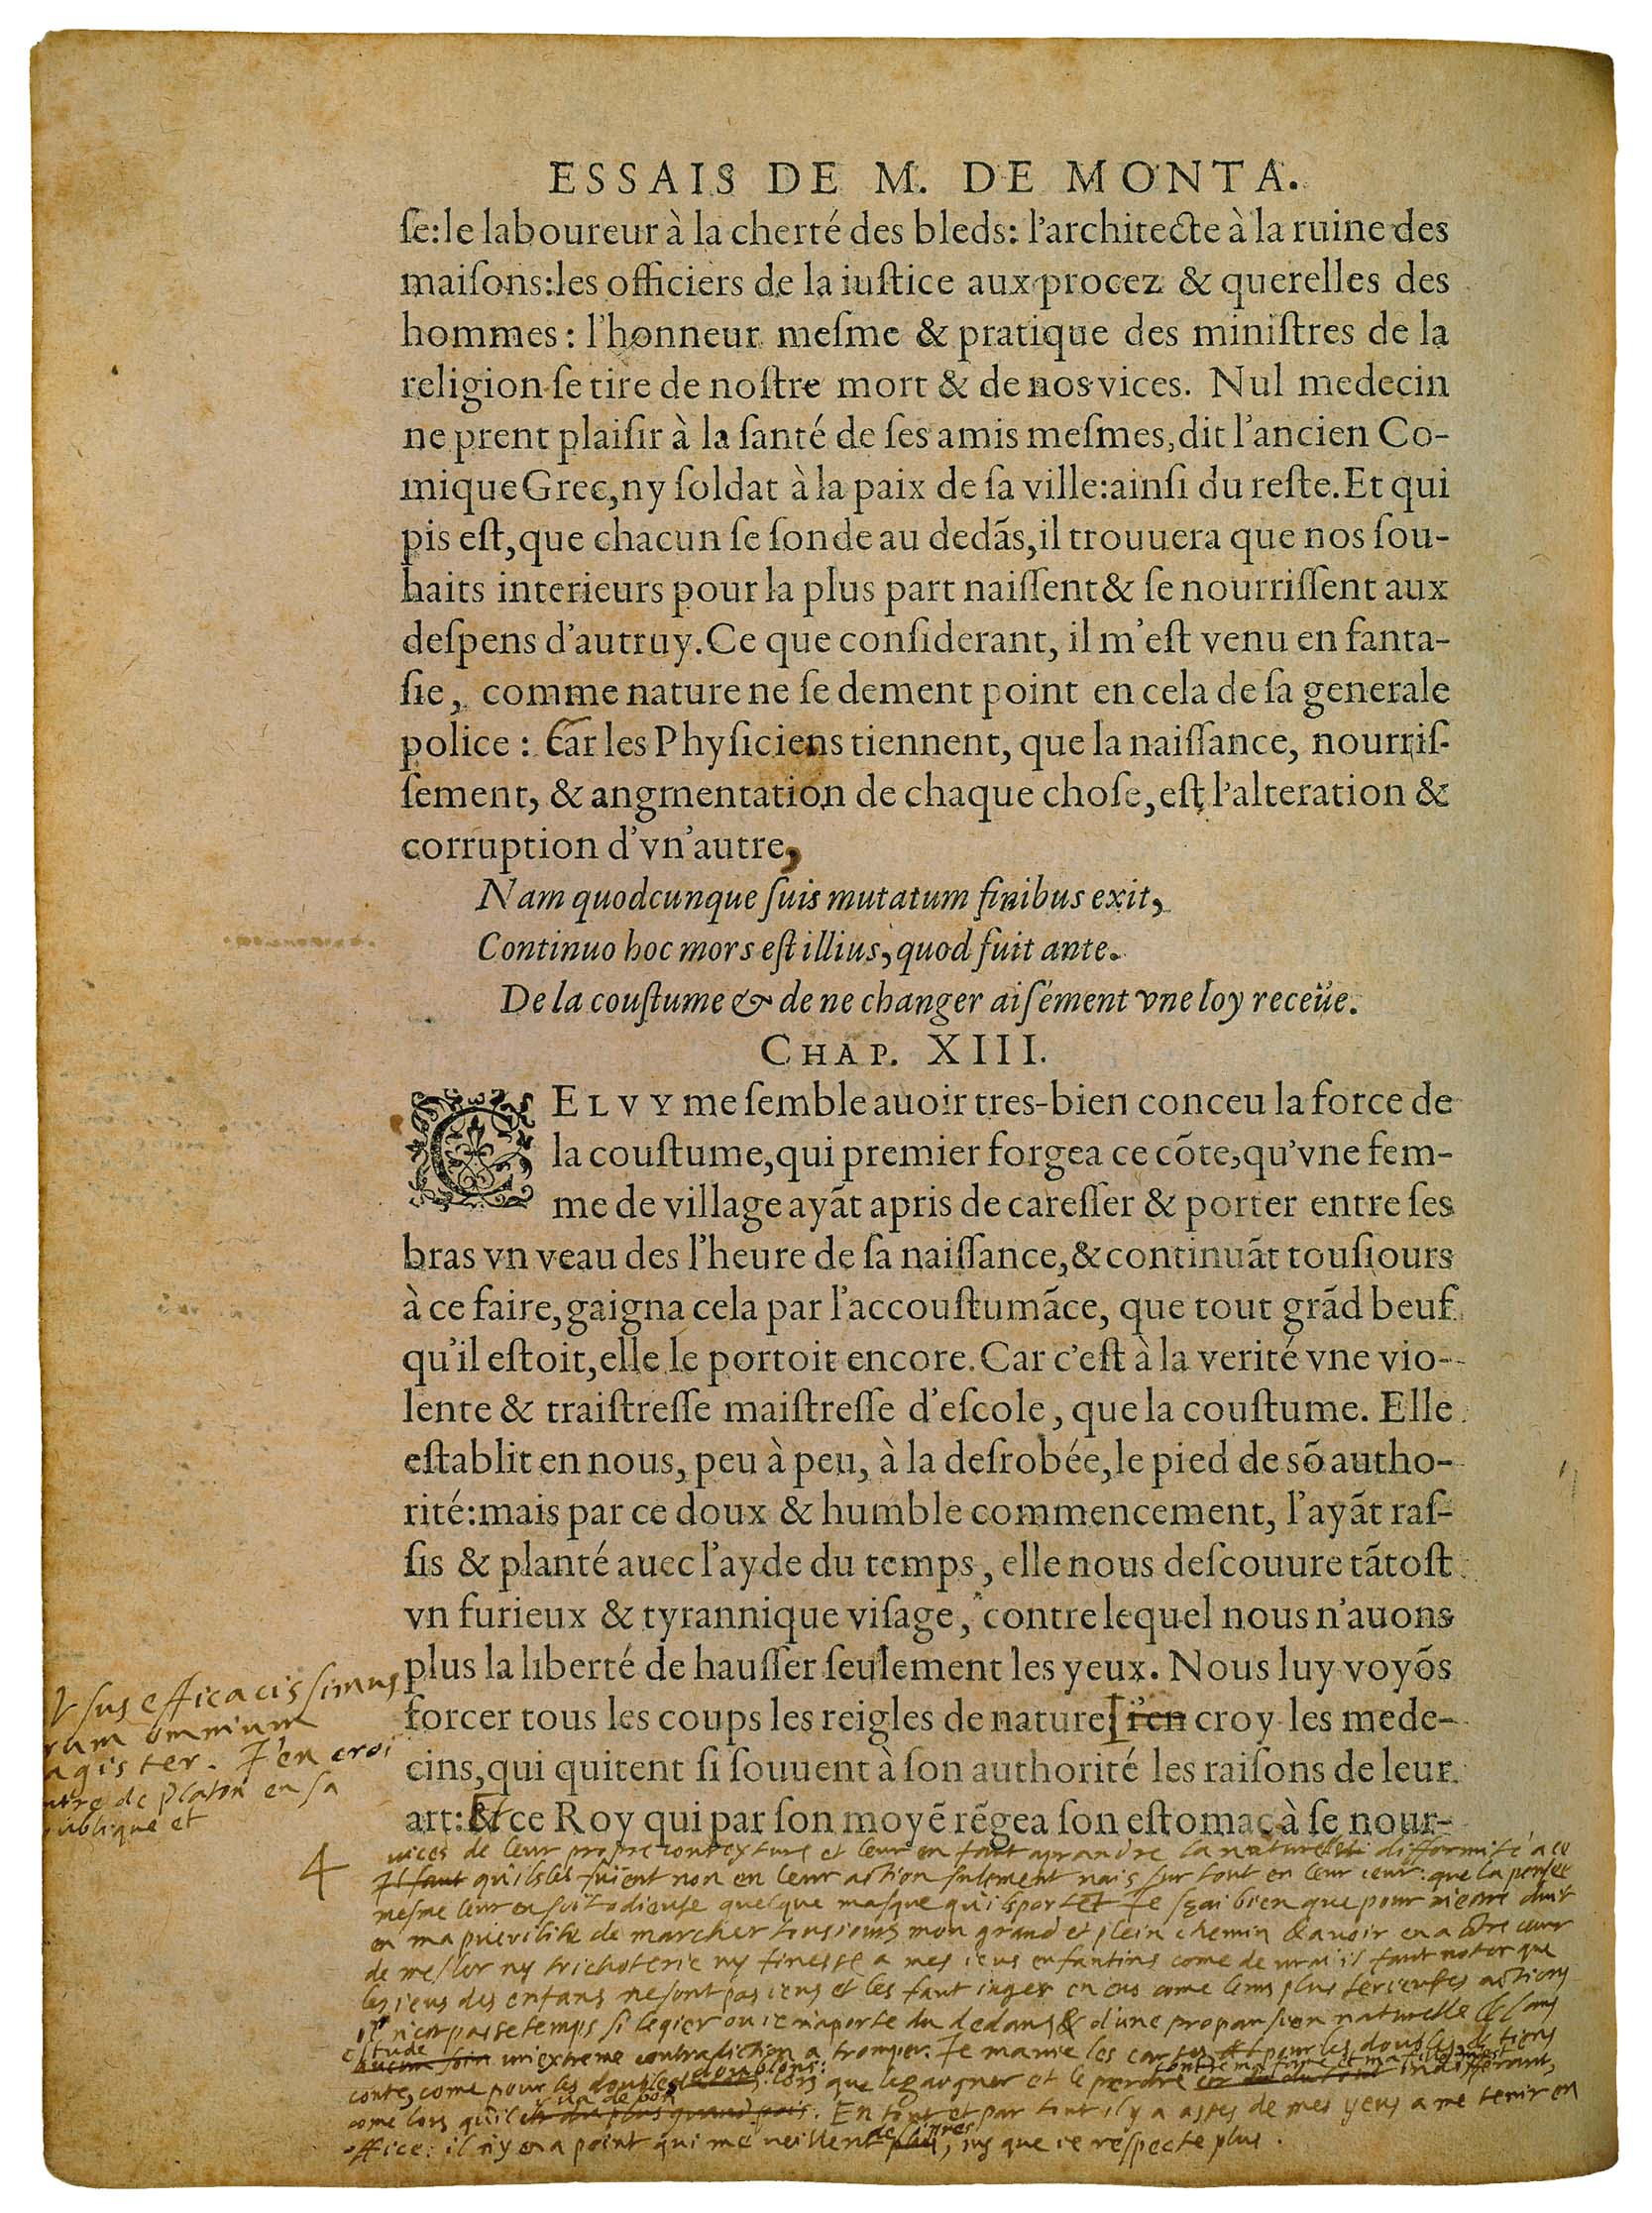 ESSAIS DE M. DE MONTA.
ſe: le laboureur à la cherté des bleds: l'architecte à la ruine des
maiſons: les officiers de la iuſtice aux procez & querelles des
hommes : l'honneur meſme & pratique des miniſtres de la
religion ſe tire de noſtre mort & de nos vices. Nul medecin
ne prent plaiſir à la ſanté de ſes amis meſmes, dit l'ancien Co-
mique Grec, ny ſoldat à la paix de ſa ville: ainſi du reſte. Et qui
pis eſt, que chacun ſe ſonde au dedãs, il trouuera que nos ſou-
haits interieurs pour la plus part naiſſent & ſe nourriſſent aux
deſpens d'autruy. Ce que conſiderant, il m'eſt venu en fanta-
ſie, comme nature ne ſe dement point en cela de ſa generale
police : Car les Phyſiciens tiennent, que la naiſſance, nourriſ-
ſement, & angmentation de chaque choſe, eſt l'alteration &
corruption d'vn'autre,
Nam quodcunque ſuis mutatum finibus exit,
Continuo hoc mors eſt illius, quod fuit ante.
De la couſtume & de ne changer aiſément vne loy receüe.
CHAP. XIII.
CELVY me ſemble auoir tres-bien conceu la force de
la couſtume, qui premier forgea ce cõte, qu'vne fem-
me de village ayãt apris de careſſer & porter entre ſes
bras vn veau des l'heure de ſa naiſſance, & continuãt touſiours
à ce faire, gaigna cela par l'accouſtumãce, que tout grãd beuf
qu'il eſtoit, elle le portoit encore. Car c'eſt à la verité vne vio-
lente & traiſtreſſe maiſtreſſe d'eſcole, que la couſtume. Elle
eſtablit en nous, peu à peu, à la deſrobée, le pied de sõ autho-
rité: mais par ce doux & humble commencement, l'ayãt raſ-
ſis & planté auec l'ayde du temps, elle nous deſcouure tãtoſt
vn furieux & tyrannique viſage, contre lequel nous n'auons
plus la liberté de hauſſer ſeulement les yeux. Nous luy voyõs
forcer tous les coups les reigles de nature i'en croy les mede-
cins, qui quitent ſi ſouuent à ſon authorité les raiſons de leur
art: & ce Roy qui par ſon moyẽ rẽgea ſon eſtomac à ſe nour-
Vsus efficacissimus
rum omnium
agister. J'en croi
ntre de Platon en sa
ublique et
4
vices de leur propre contexture et leur en faut aprandre la naturelle difformité a ce
Il faut qu'ils les fuient non en leur action sulement mais sur tout en leur ceur: que la pensee
mesme leur en soit odieuse quelque masque qu'ils portet Je sçai bien que pour
en ma puerilité de marcher tousiours mon grand et plein chemin & avoir en a contre ceur
de mesler ny trichoterie ny finesse a mes ieus enfantins come de vrai il faut noter que
les ieus des enfans ne sont pas ieus et les faut iuger en eus come leurs plus serieuses actions
il n'est passetemps si legier ou ie n'aporte du dedans & d'une propansion naturelle & sans
estude aucun soin un'extreme contradiction a tromper. Je manie les cartes pour les doubles
conte, come pour les doubles doublons: lors que le gaigner et le perdre contre ma fame et ma fille indifferant,
come lors qu'il y va de bon. En tout et par tout il y a asses de mes yeus a me tenir en
office: il n'y en a point qui me veillent de si pres, ny que ie respecte plus.